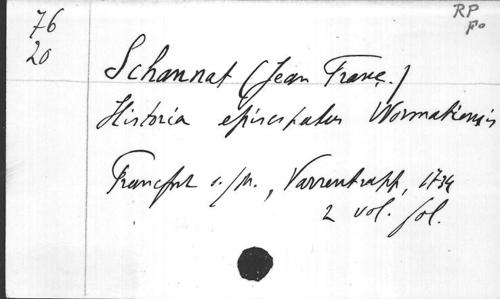 76
20
RP
Fo
Schannat (Jean Franç.)
Historia episcopatus Wormatiensis
Francfort s./M., Varrentrapp, 1734
2 vol. fol.